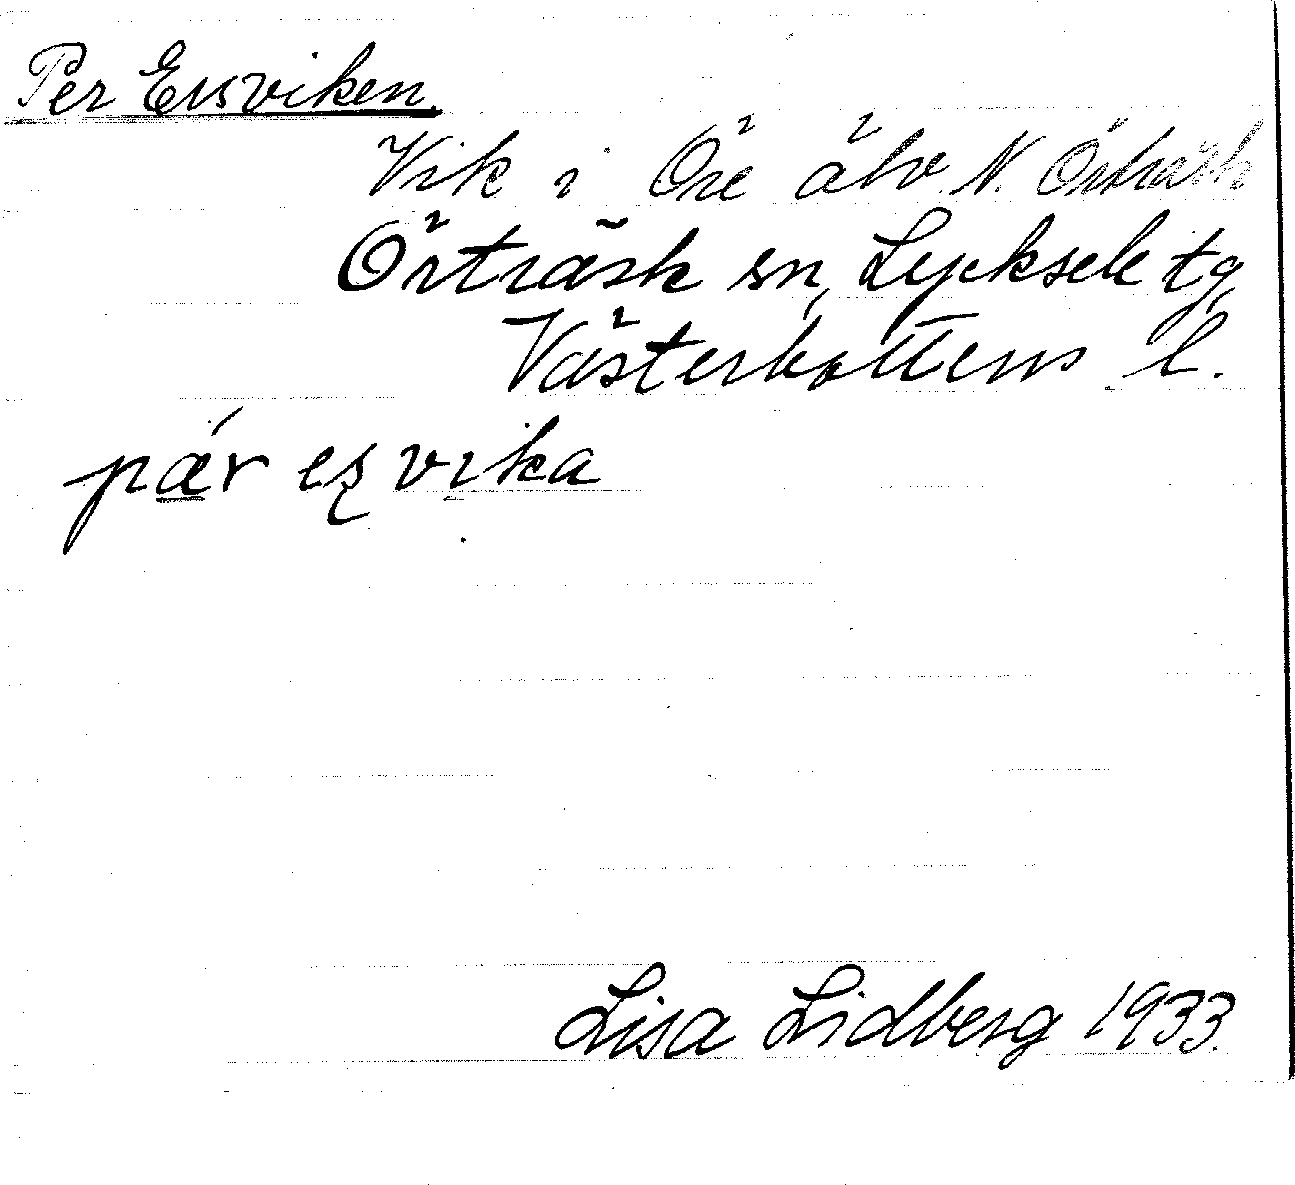 Per Ersviken.
Vik i Öre älv N. Örträsk
Örträsk sn, Lycksele tg
Västerbottens l.
pǽr eʂ vika
Lisa Lidberg 1933.